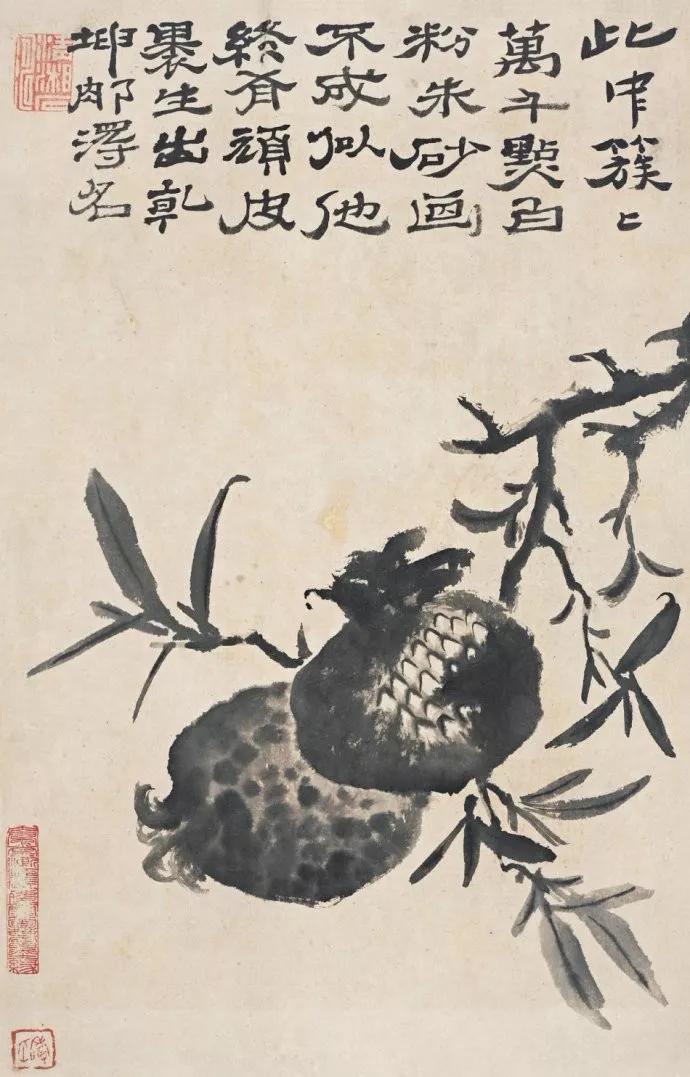 此中簇〻
萬千點白
粉朱砂画
不成似他
終有頑皮
裹生出乾
坤那淂名